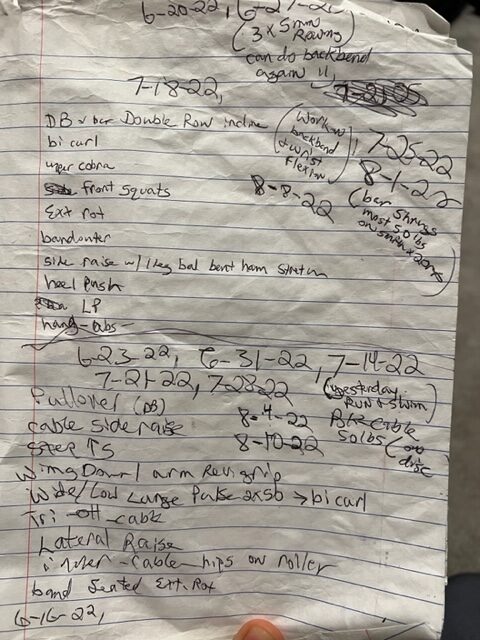 6-20-22, 6-27-22
(3 x 5 min Rowing)
can do backbend again !!
7-18-22,
DB + bar Double Row incline
(Work w backbend + wrist flexion)
7-25-22
bi curl
8-1-22
upper cobra
front squats
8-8-22
(bar shrugs most 50 lbs on smith
Ext rot
band outer
side raise w/ 1 leg bal bent ham stretch
heel push
LP
hang-abs-
6-23-22, 6-31-22, 7-14-22
7-21-22, 7-28-22 (yesterday RUN & swim)
Pullover (DB)
8-4-22
cable side raise
50 lbs (on disc
8-10-22
step ↑s
Wing Down 1 arm Rev. grip
Wide/Low Lunge Pulse 2x50 → bi curl
Tri - off - cable
Lateral Raise
inner - cable - hips on roller
band Seated Ext. Rot
6-16-22,